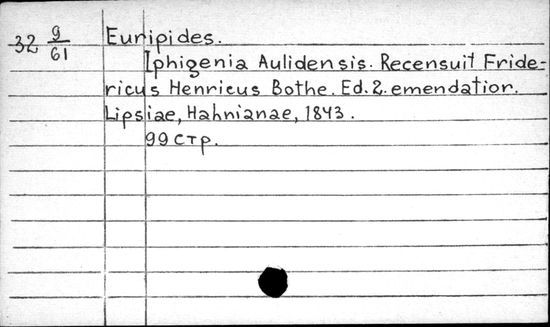 32 9/61 Euripides.
Iphigenia Aulidensis. Recensuit Fride-
ricus Henricus Bothe. Ed. 2. emendatior.
Lipsiae, Hahnianae, 1843.
99 стр.